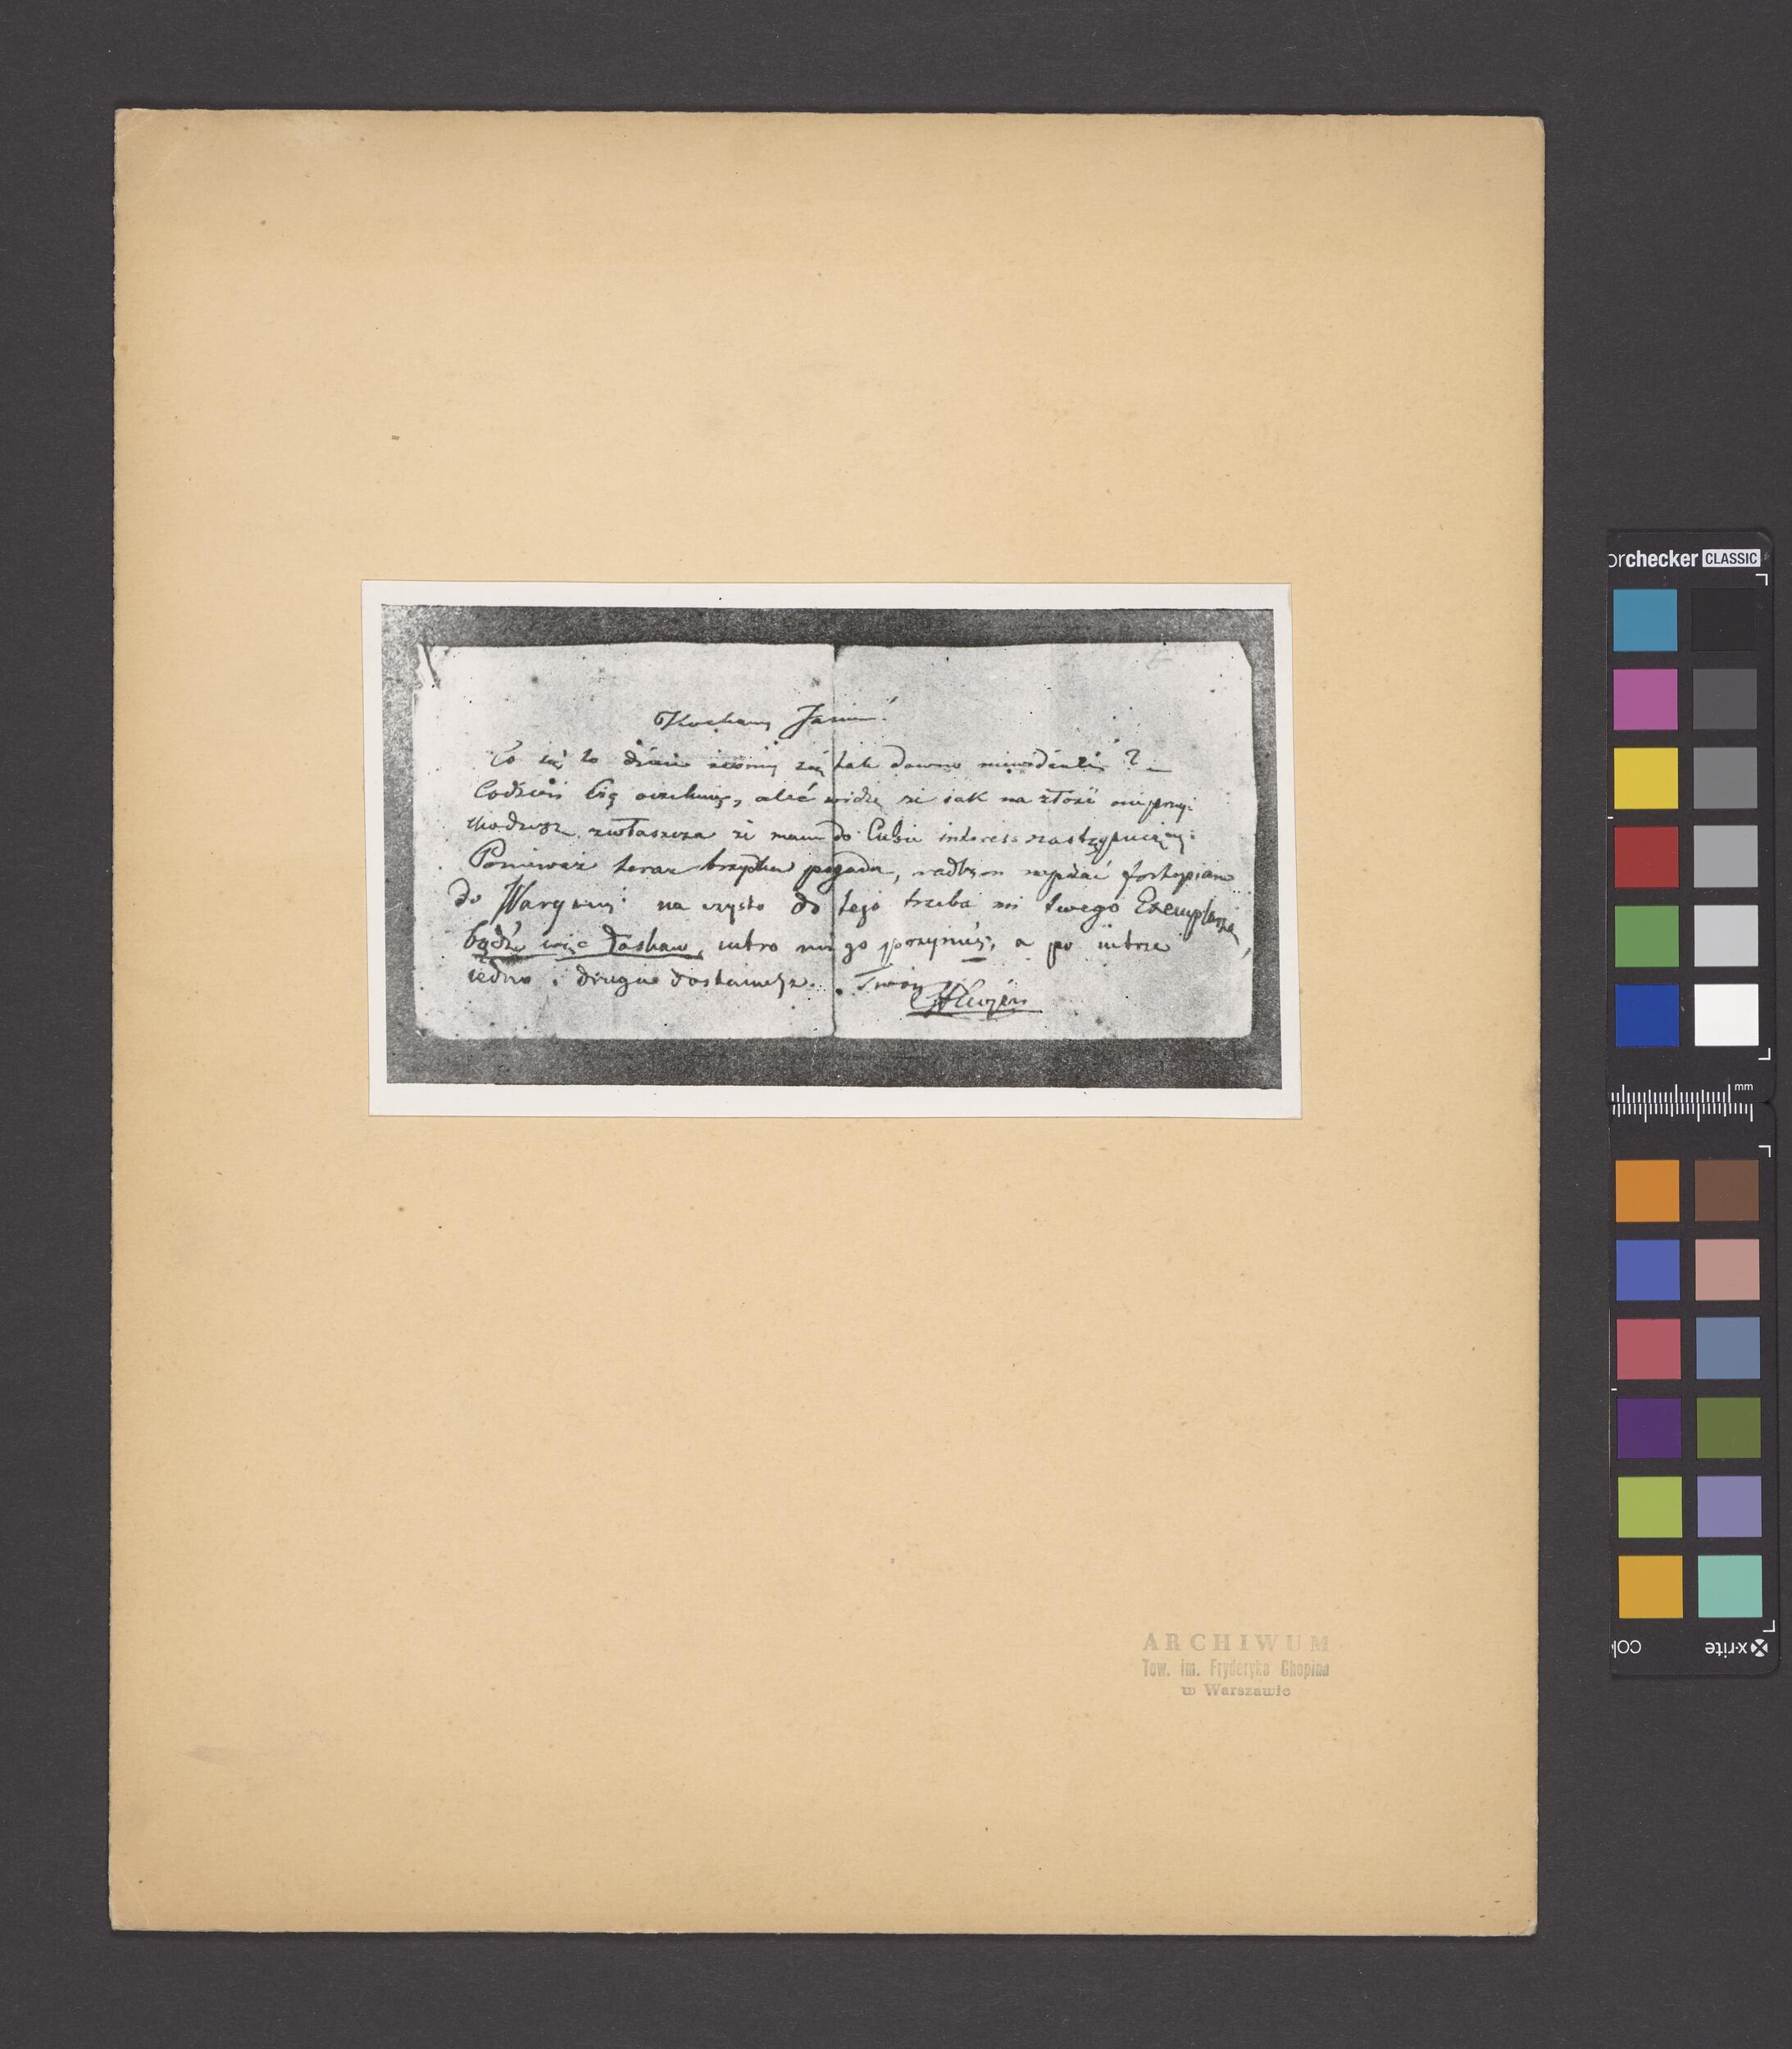 Kochany Jasiu!
Co się to dzieie żeśmy się tak dawno niewidzieli? –
Codzień Cię oczekuię, aleć widzę że iak na złość nieprzy-
chodzisz, zwłaszcza że mam do Ciebie interess następuiący:
Ponieważ teraz brzydka pogoda, radbym wypisać fortepiano
do Waryacyi na czysto do tego trzeba mi twego Exemplarza,
bądź więc łaskaw, iutro mi go przynieś, a po iutrze
iedno i drugie dostaniesz. Twóy
FFChopin
ARCHIWUM
Tow. im. Fryderyka Chopina
w Warszawie
orchecker CLASSIC
mm
x-rite
col